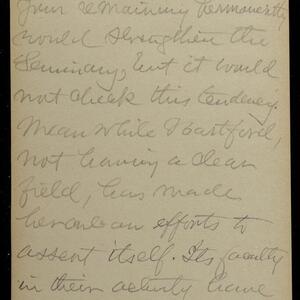 your remaining permanently
would strengthen the
Seminary, but it would
not check this tendency.
Mean while Hartford,
not having a clear
field, has made
herculean efforts to
assert itself. Its faculty
in their activity have